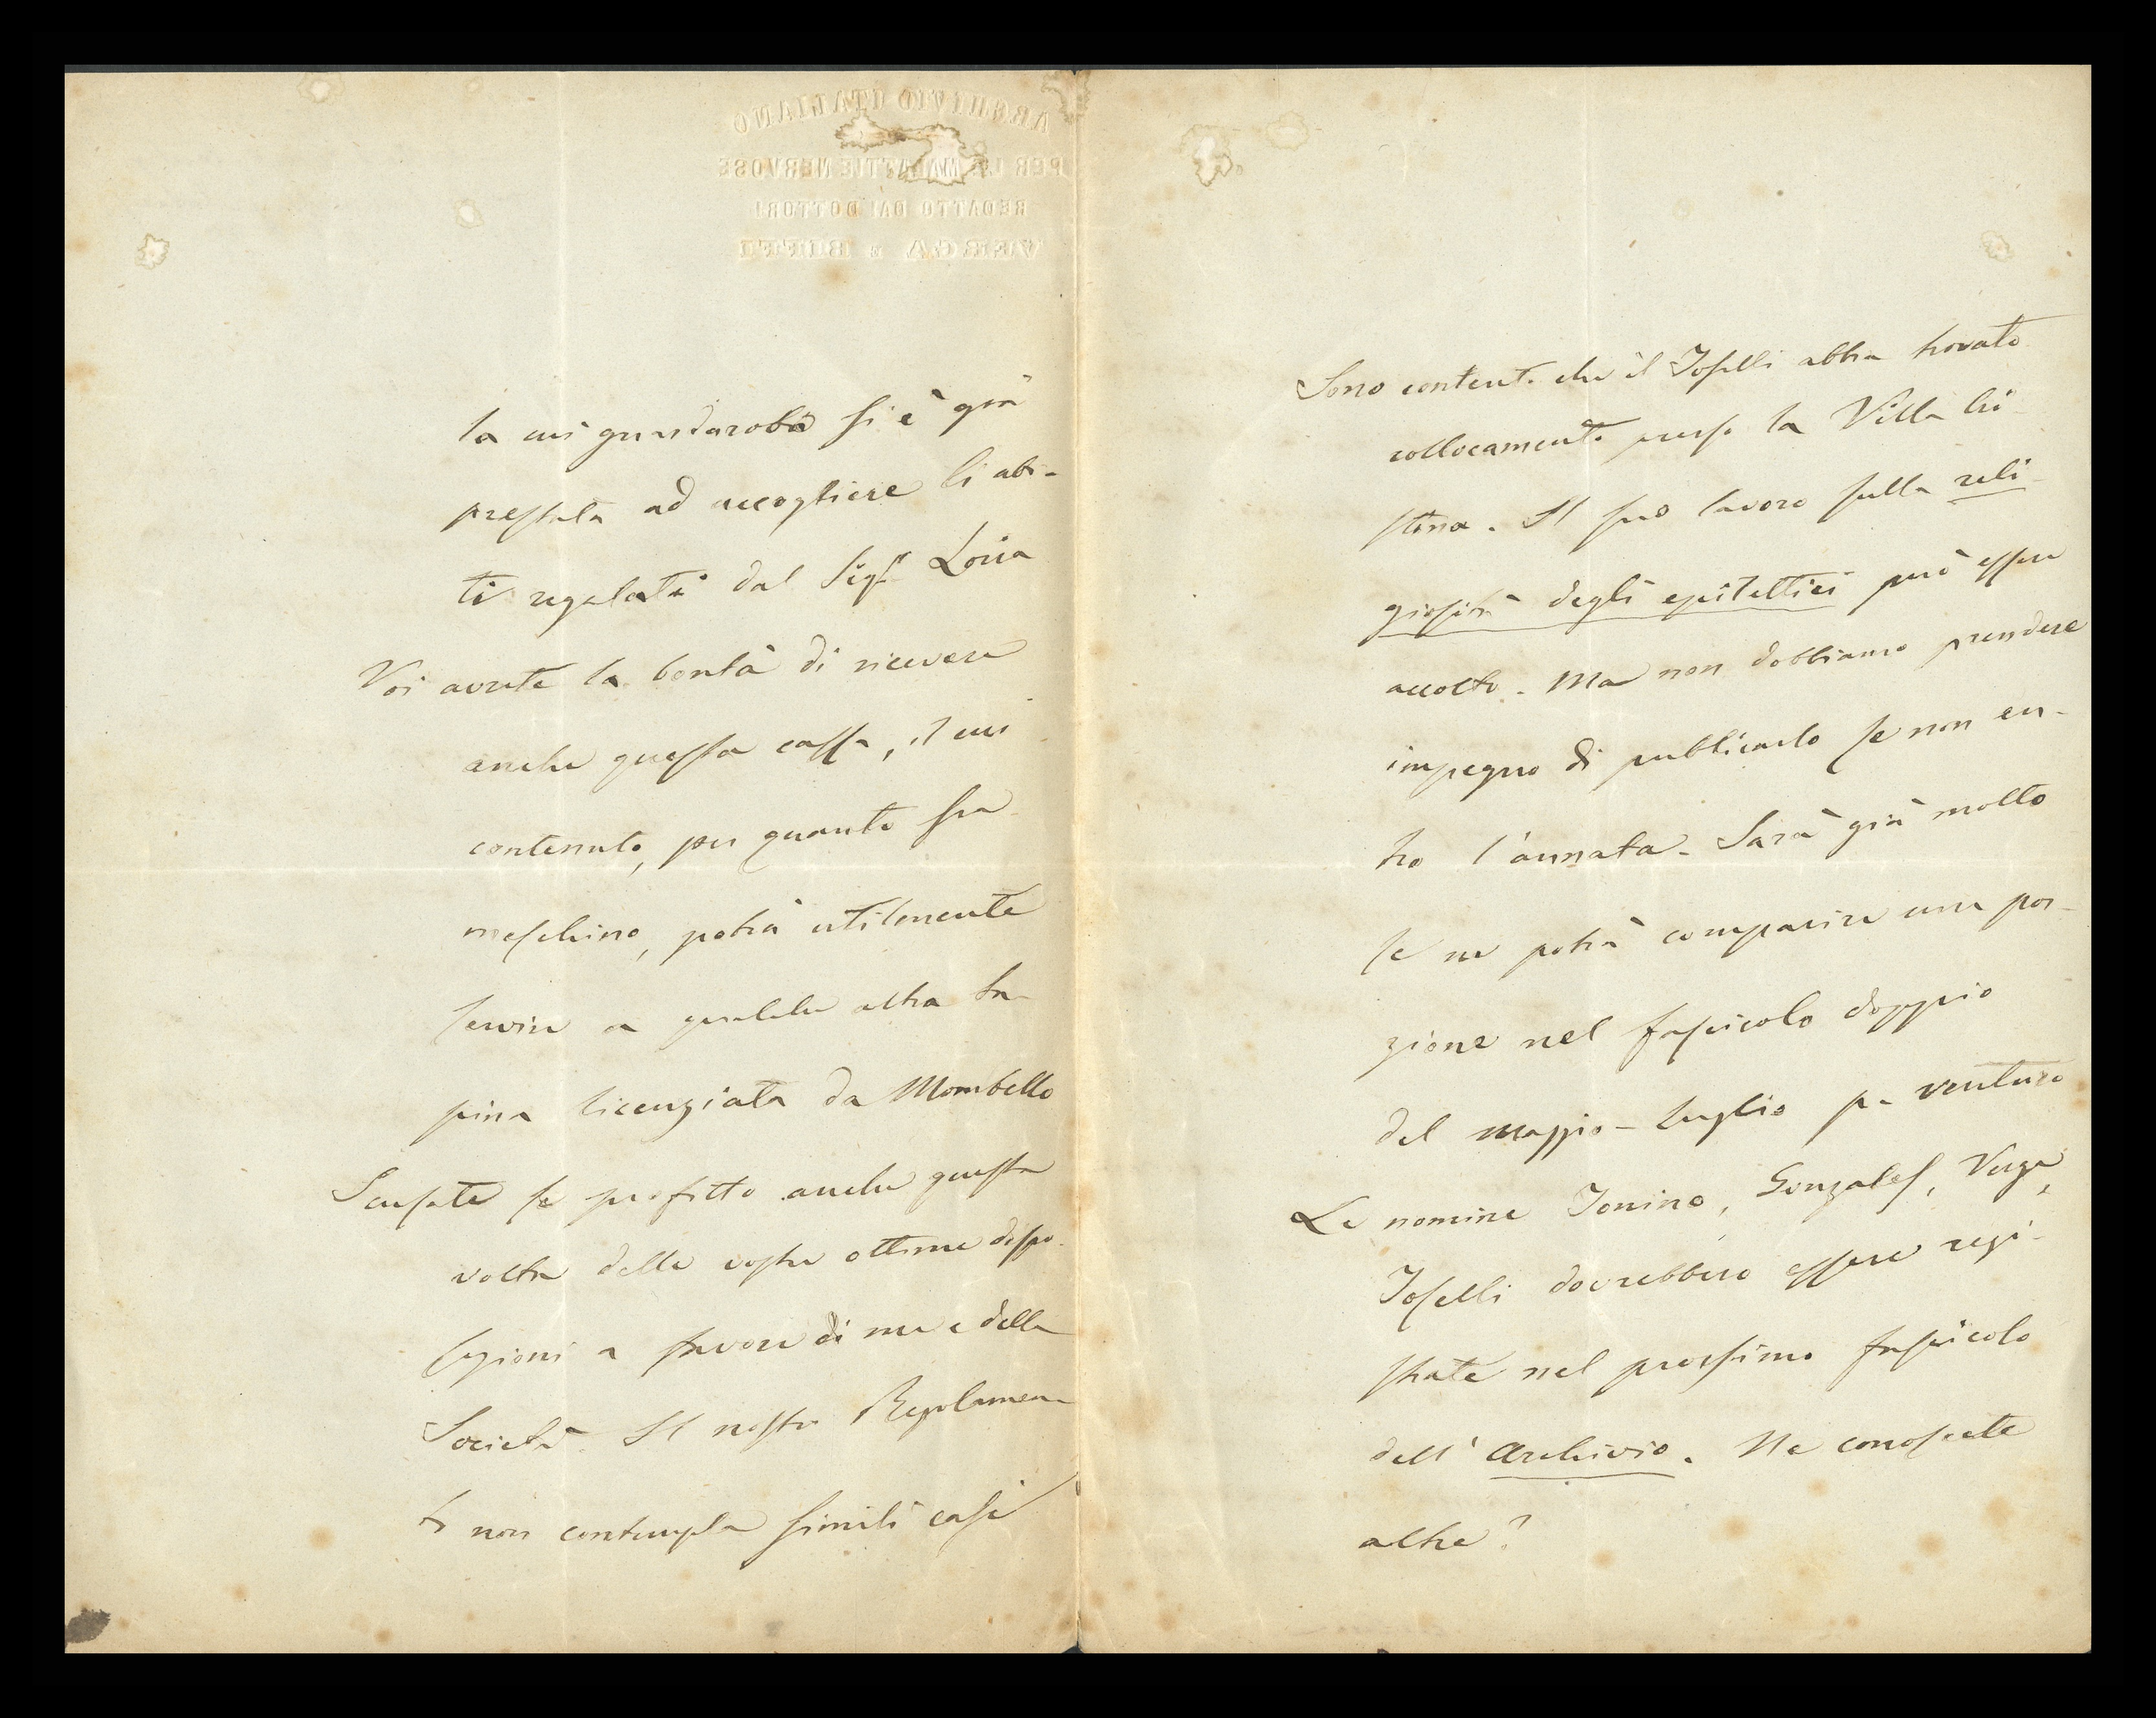 ARCHIVIO ITALIANO
PER LE MALATTIE NERVOSE
REDATTO DAI DOTTORI
VERGA E BIFFI
la cui guardaroba si è già
prestata ad accogliere li abi-
ti regalati dal Sigr Loria
Voi avrete la bontà di ricevere
anche questa cassa, il cui
contenuto, per quanto sia
meschino, potrà utilmente
servire a qualche altra ta-
pina licenziata da Mombello
Scusate se profitto anche questa
volta delle vostre ottime dispo-
sizioni a favore di me e della
Società. Il nostro Regolamen-
to non contempla simili casi
Sono contento che il Toselli abbia trovato
collocamento presso la Villa Cri-
stina. Il suo lavoro sulla reli-
giosità degli epilettici può essere
accolto. Ma non dobbiamo prendere
impegno di pubblicarlo se non en-
tro l'annata. Sarà già molto
se ne potrà comparire una por-
zione nel fascicolo doppio
del maggio-luglio p. venturo
Le nomine Tonino, Gonzales, Verga,
Toselli dovrebbero essere regi-
strate nel prossimo fascicolo
dell'Archivio. Ne conoscete
altre?